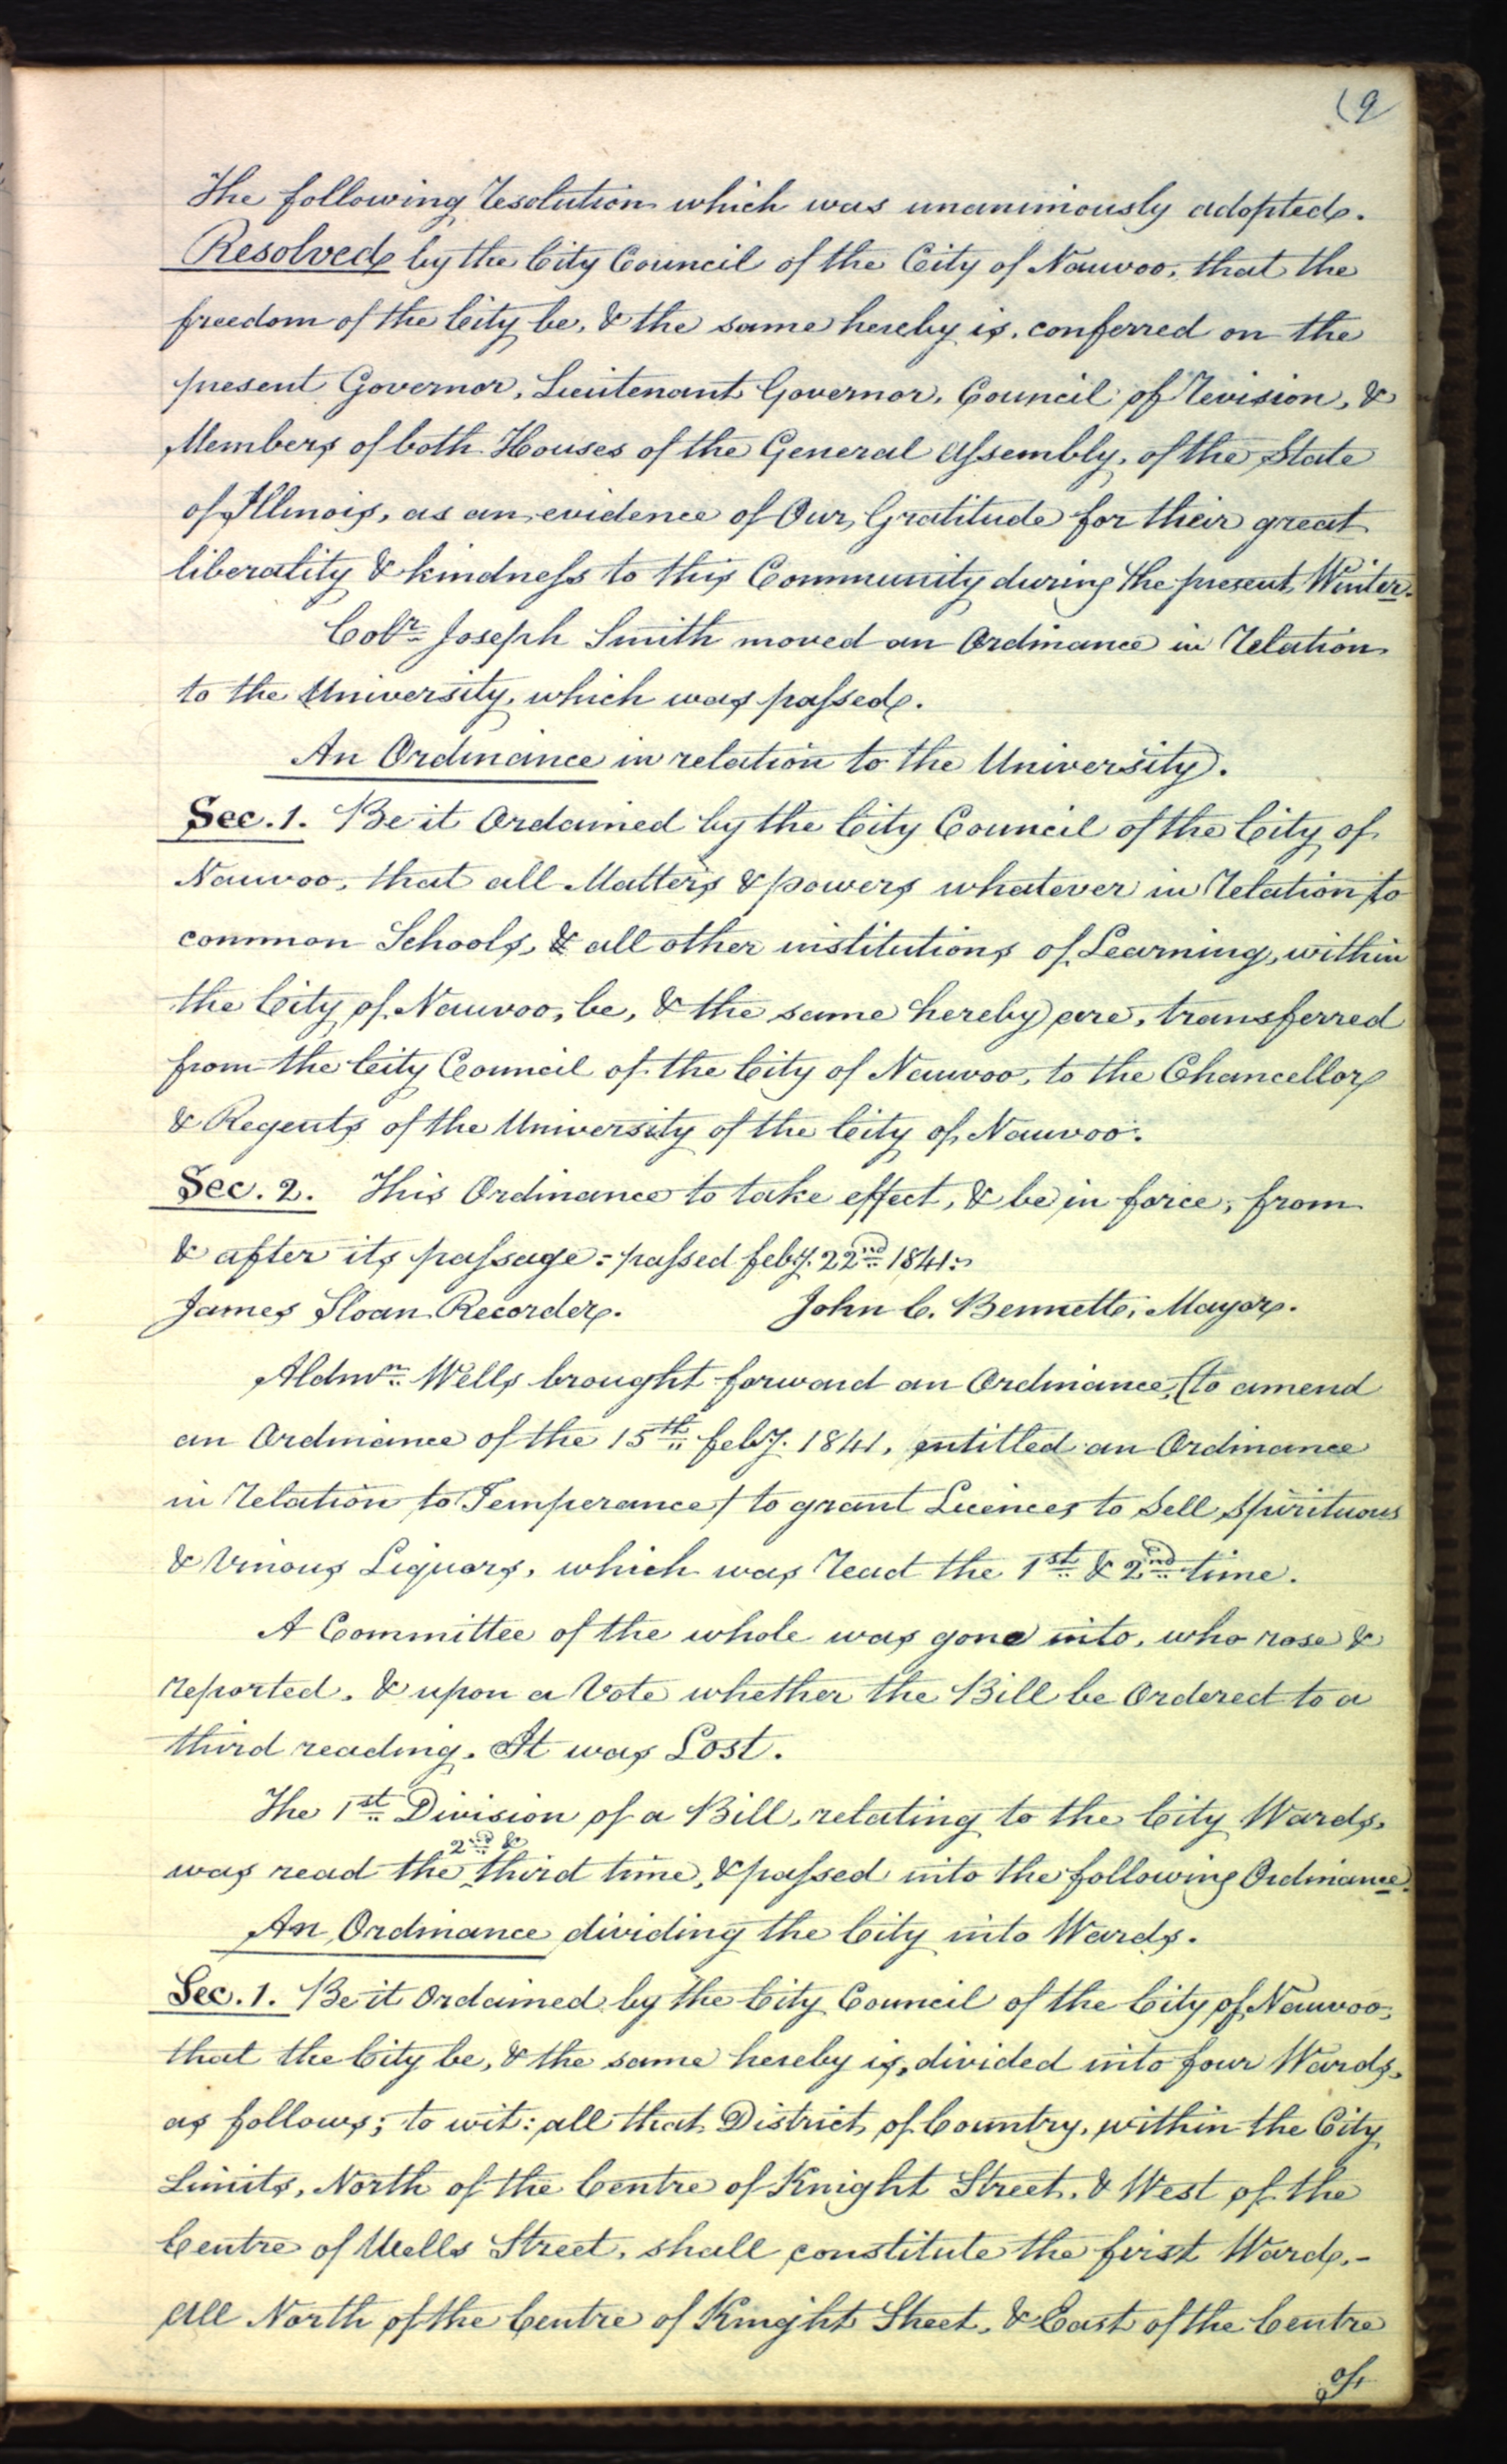 (9
The following resolution which was unanimously adopted.
Resolved by the City Council of the City of Nauvoo, that the
freedom of the City be, & the same hereby is, conferred on the
present Governor, Lieutenant Governor, Council of revision, &
Members of both Houses of the General Assembly, of the State
of Illinois, as an evidence of Our Gratitude for their great
liberality & kindness to this Community during the present Winter.
Colr. Joseph Smith moved an Ordinance in relation
to the University, which was passed.
An Ordinance in relation to the University.
Sec. 1. Be it Ordained by the City Council of the City of
Nauvoo, that all Matters & powers whatever in relation to
common Schools, & all other institutions of Learning, within
the City of Nauvoo, be, & the same hereby are, transferred
from the City Council of the City of Nauvoo, to the Chancellor
& Regents of the University of the City of Nauvoo.
Sec. 2. This Ordinance to take effect, & be in force, from
& after its passage = passed feby. 22nd 1841.
James Sloan Recorder. John C. Bennett, Mayor.
Aldmn. Wells brought forward an Ordinance, (to amend
an Ordinance of the 15th feby. 1841, entitled an Ordinance
in relation to Temperance) to grant Licences to Sell Spirituous
& Vinous Liquors, which was read the 1st & 2nd time.
A Committee of the whole was gone into, who rose &
reported, & upon a Vote whether the Bill be Ordered to a
third reading, It was Lost.
The 1st Division of a Bill, relating to the City Wards,
was read the 2nd & third time, & passed into the following Ordinance.
An Ordinance dividing the City into Wards.
Sec. 1. Be it Ordained by the City Council of the City of Nauvoo,
that the City be, & the same hereby is, divided into four Wards,
as follows; to wit: all that District of Country, within the City
Limits, North of the Centre of Knight Street, & West of the
Centre of Wells Street, shall constitute the first Ward,-
All North of the Centre of Knight Street, & East of the Centre
of